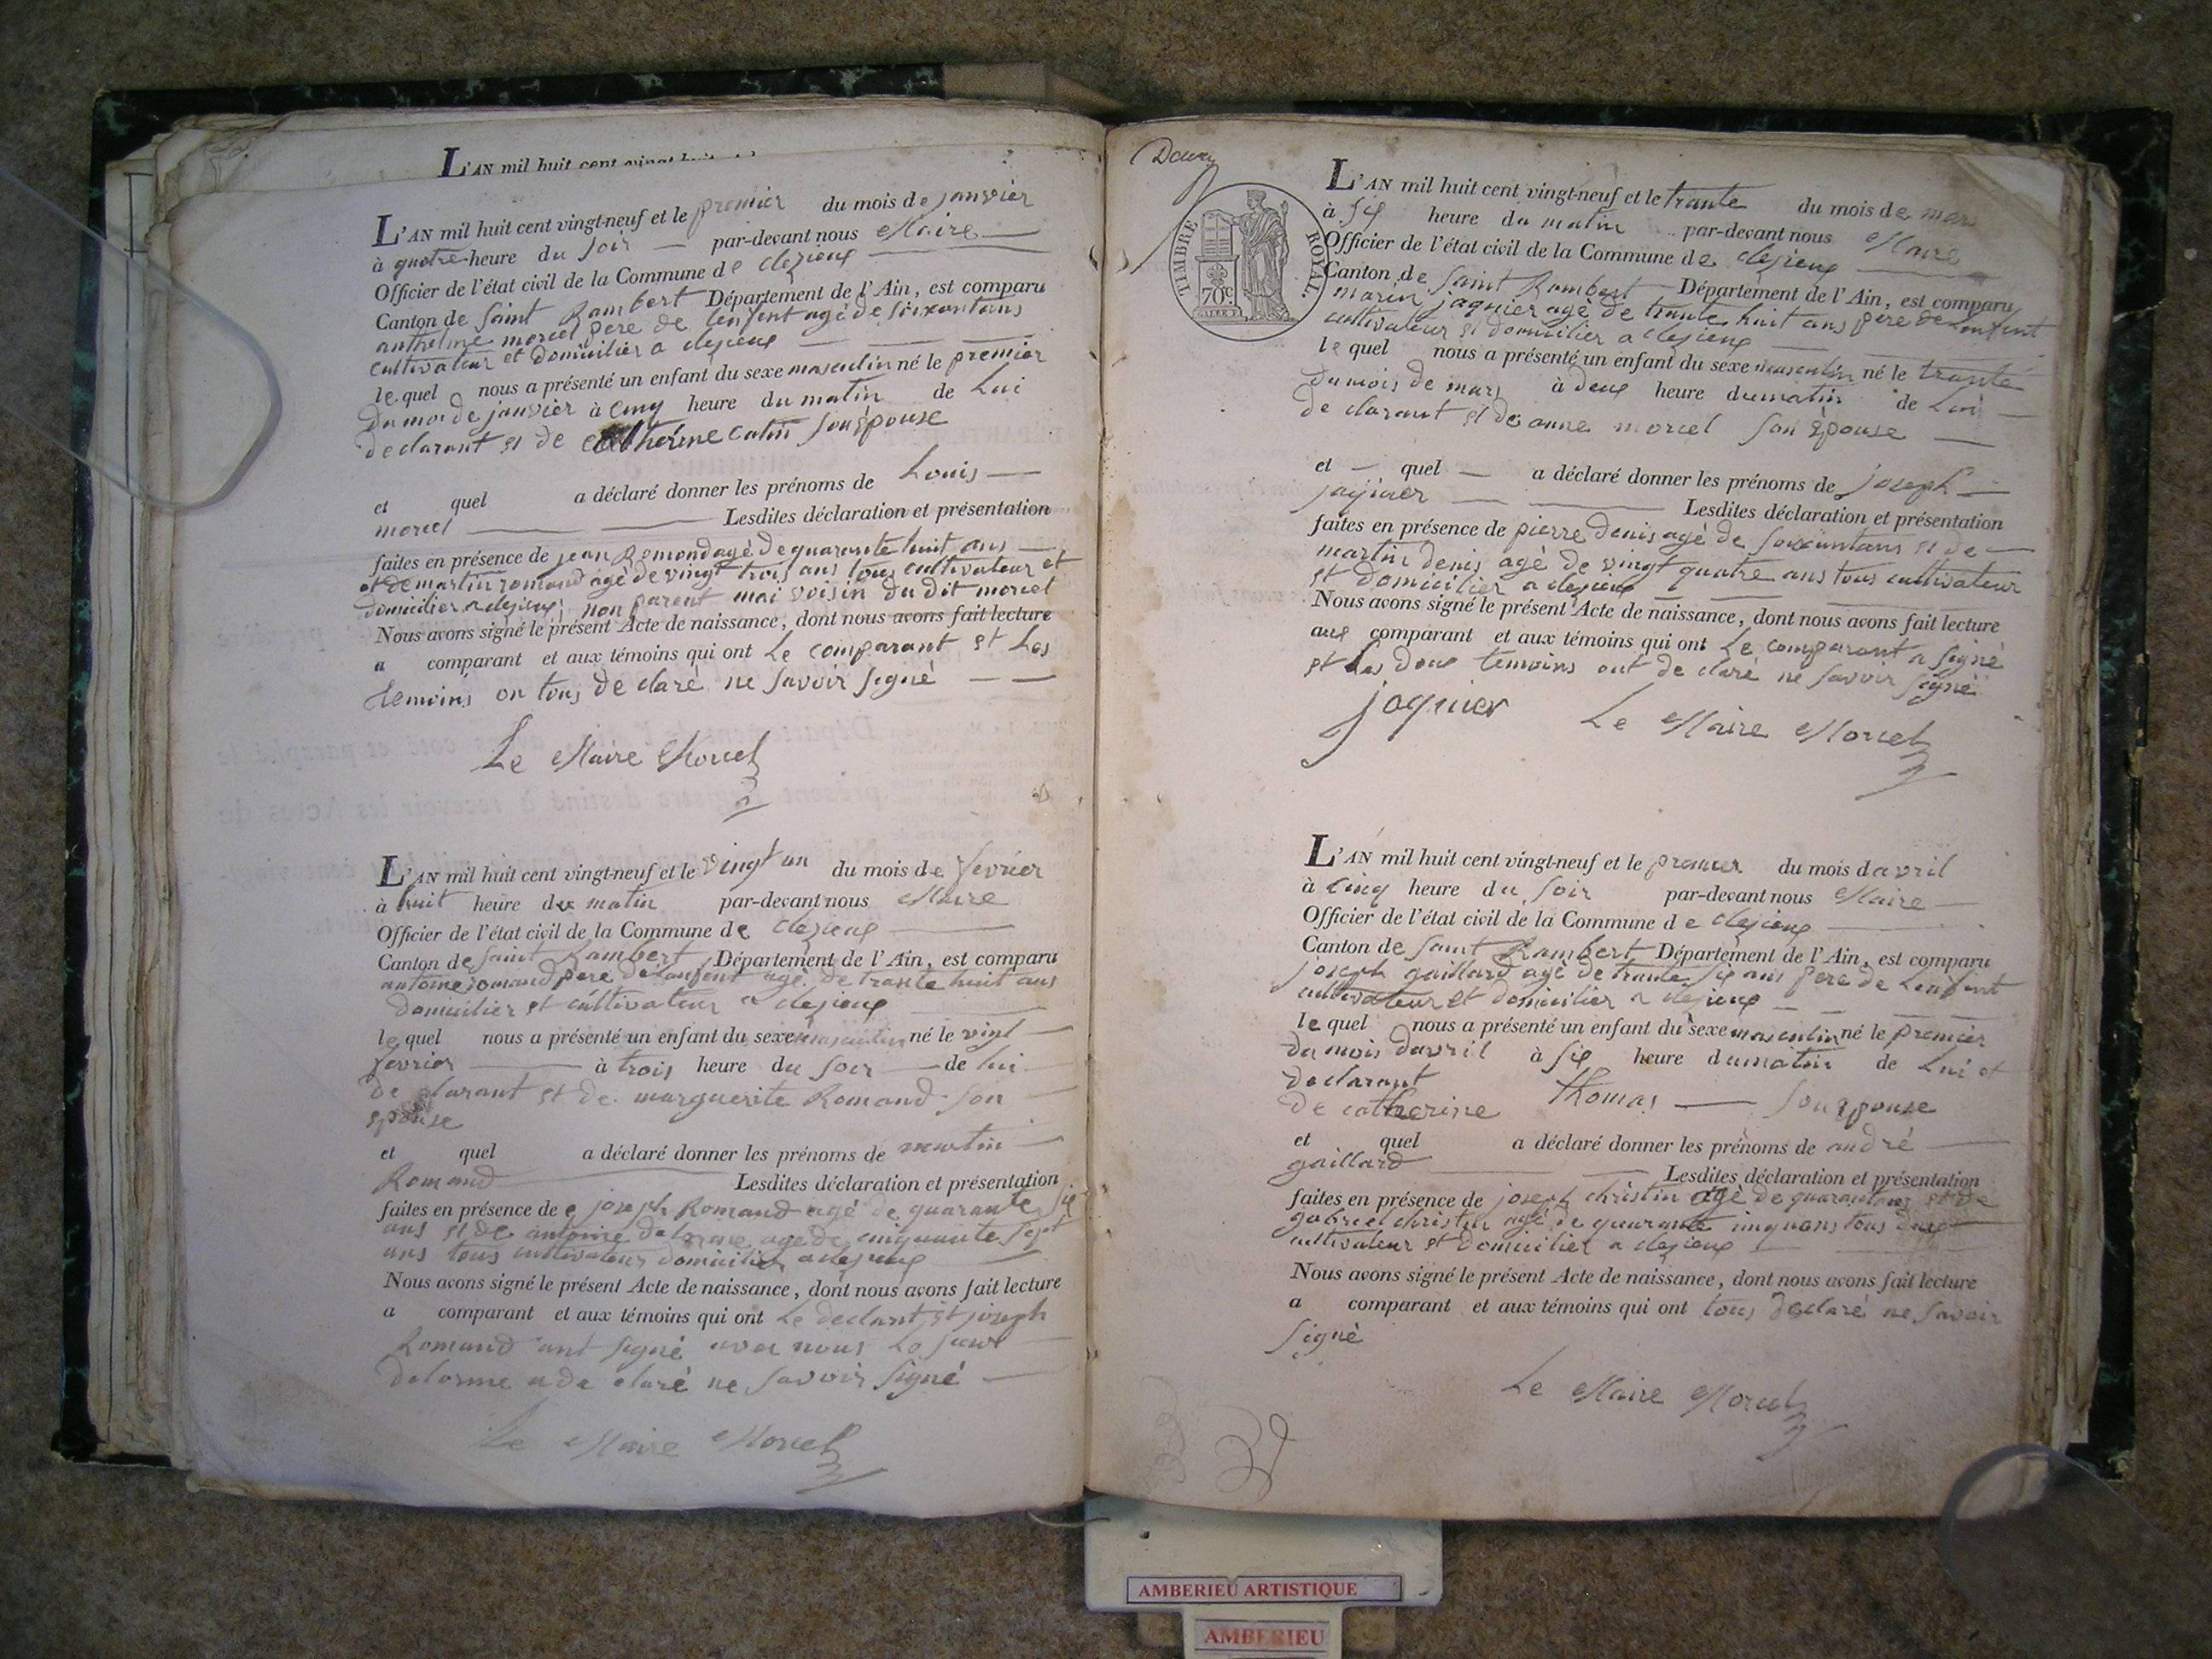 L'AN mil huit cent vingt-huit
L'AN mil huit cent vingt-neuf et le premier du mois de janvier
à quatre heure du soir — par-devant nous Maire —
Officier de l'état civil de la Commune de clezieux —
Canton de Saint Rambert Département de l'Ain, est comparu
anthelme morcel pere de lenfent agé de soixantans
cultivateur et domicilier a clezieux — — —
le quel nous a présenté un enfant du sexe masculin né le premier
du moi de janvier à cinq heure du matin de Lui
declarant et de catherine cutin son épouse
et quel a déclaré donner les prénoms de Louis —
morcel — — Lesdites déclaration et présentation
faites en présence de jean Romond agé de quarante huit ans —
et de martin romand agé de vingt trois ans tous cultivateur et
domicilier a clezieux non parent mai voisin du dit morcel
Nous avons signé le présent Acte de naissance, dont nous avons fait lecture
a comparant et aux témoins qui ont Le comparant et Les
temoins on tous declaré ne savoir signé — —
Le Maire Morcel
L'AN mil huit cent vingt-neuf et le vingt un du mois de fevrier
à huit heure du matin par-devant nous Maire
Officier de l'état civil de la Commune de clezieux —
Canton de Saint Rambert Département de l'Ain, est comparu
antoine romand pere de lanfent agé de trante huit ans
domicilier et cultivateur a clezieux —
le quel nous a présenté un enfant du sexe masculin né le vint —
fevrier — à trois heure du soir — de lui —
de clarant et de marguerite Romand son —
epouse
et quel a déclaré donner les prénoms de martin —
Romand — Lesdites déclaration et présentation
faites en présence de joseph Romand agé de quarante six
ans et de antoine delorme agé de cinquante sept
ans tous cultivateur domicilier a clezieux —
Nous avons signé le présent Acte de naissance, dont nous avons fait lecture
a comparant et aux témoins qui ont Le declant et joseph
Romand ont signé avec nous
delorme a de claré ne savoir signé —
Le Maire Morcel
TIMBRE ROYAL.
70c
L'AN mil huit cent vingt-neuf et le trante du mois de mars
à six heure du matin par-devant nous Maire
Officier de l'état civil de la Commune de clezieux —
Canton de Saint Rambert Département de l'Ain, est comparu
marin jaquier agé de trante huit ans pere de Lenfent
cultivateur et domicilier a clezieux —
le quel nous a présenté un enfant du sexe masculin né le trante
du mois de mars à deux heure du matin de Lui —
de clarant et de anne morcel son épouse —
et — quel — a déclaré donner les prénoms de joseph —
jaquier — — Lesdites déclaration et présentation
faites en présence de pierre denis agé de soixantans et de —
martin denis agé de vingt quatre ans tous cultivateur
et domicilier a clezieux — — —
Nous avons signé le présent Acte de naissance, dont nous avons fait lecture
aux comparant et aux témoins qui ont Le comparant a signé
et Les deux temoins ont de claré ne savoir signé
jaquier Le Maire Morcel
L'AN mil huit cent vingt-neuf et le premier du mois davril
à cinq heure du soir par-devant nous Maire —
Officier de l'état civil de la Commune de clezieux —
Canton de Saint Rambert Département de l'Ain, est comparu
joseph gaillard agé de trante six ans pere de Lenfent
cultivateur et domicilier a clezieux — — —
le quel nous a présenté un enfant du sexe masculin né le premier
du mois davril à six heure du matin de Lui et
declarant
de catherine thomas — son epouse
et quel a déclaré donner les prénoms de andré —
gaillard — — Lesdites déclaration et présentation
faites en présence de joseph christin agé de quarantans et de
gabriel christin agé de quarante cinquans tous deux
cultivateur et domicilier a clezieux —
Nous avons signé le présent Acte de naissance, dont nous avons fait lecture
a comparant et aux témoins qui ont tous declaré ne savoir
signé
Le Maire Morcel
AMBERIEU ARTISTIQUE
AMBERIEU